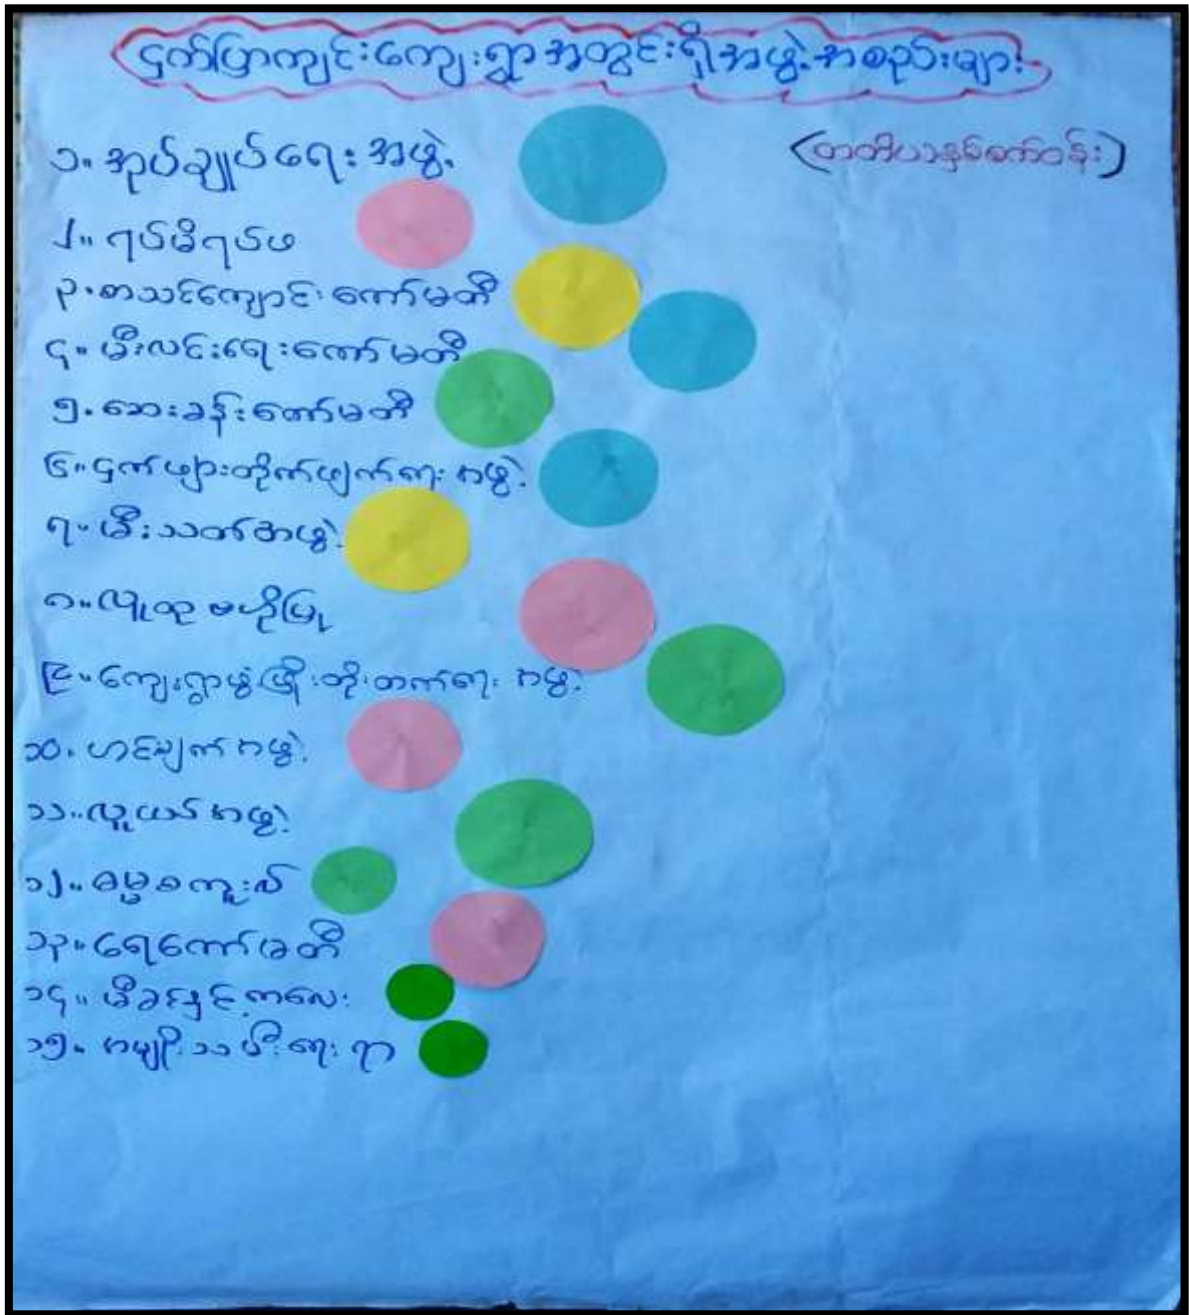 ငှက်ပြာကျင်းကျေးရွာအတွင်းရှိအဖွဲ့အစည်းများ
၁။ အုပ်ချုပ်ရေးအဖွဲ့
(တတိယနှစ်စက်ဝန်း)
၂။ ရပ်မိရပ်ဖ
၃။ စာသင်ကျောင်းကော်မတီ
၄။ မီးလင်းရေးကော်မတီ
၅။ ဆေးခန်းကော်မတီ
၆။ ငှက်ဖျားတိုက်ဖျက်ရေးအဖွဲ့
၇။ မီးသတ်အဖွဲ့
၈။ လူထုဗဟိုပြု
၉။ ကျေးရွာဖွံ့ဖြိုးတိုးတက်ရေးအဖွဲ့
၁၀။ ဟင်းချက်အဖွဲ့
၁၁။ လူငယ်အဖွဲ့
၁၂။ ဓမ္မစကူးလ်
၁၃။ ရေကော်မတီ
၁၄။ မိခင်နှင့်ကလေး
၁၅။ အမျိုးသမီးရေးရာ